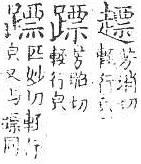 𧽤 芳消切
輕行皃
芳昭切
輕行皃
匹妙切輕行
皃又与同